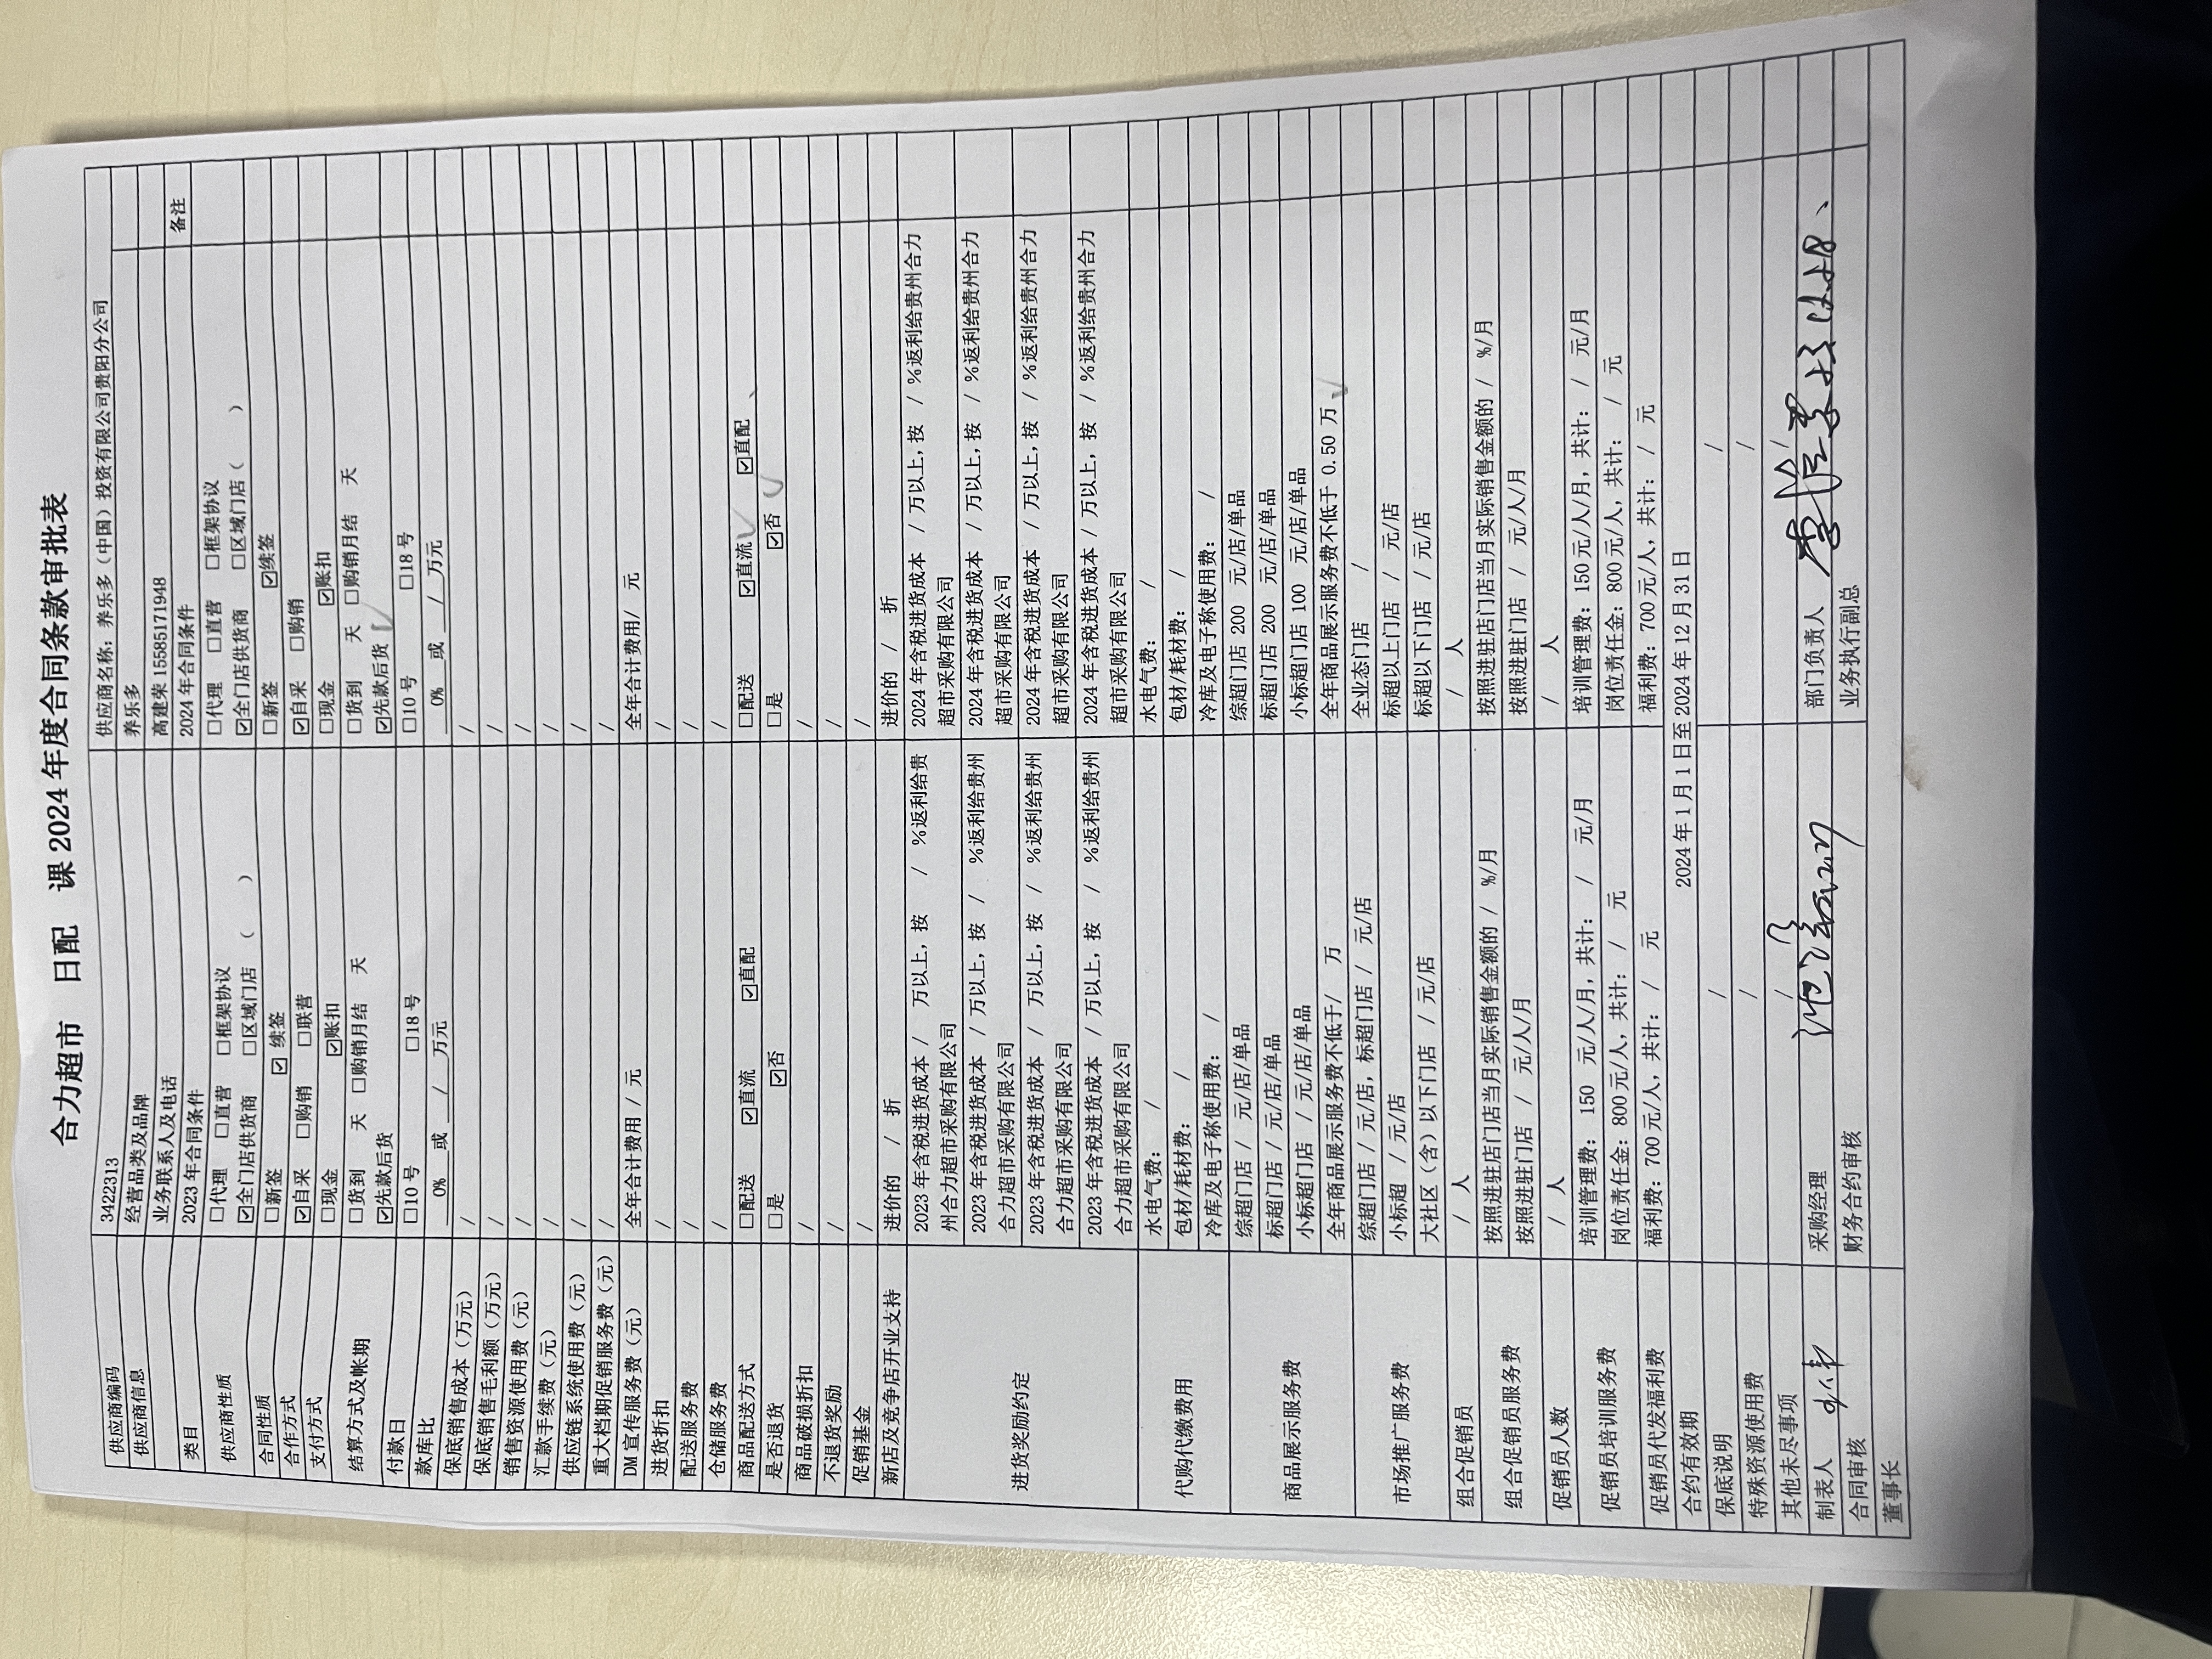 合力超市 日配 课 2024 年度合同条款审批表
供应商编码 3422313 供应商名称：养乐多（中国）投资有限公司贵阳分公司
供应商信息 经营品类及品牌 养乐多
业务联系人及电话 高建荣 15585171948
类目 2023 年合同条件 2024 年合同条件 备注
供应商性质 □代理 □直营 □框架协议 □代理 □直营 □框架协议
☑全门店供货商 □区域门店（ ） ☑全门店供货商 □区域门店（ ）
合同性质 □新签 ☑ 续签 □新签 ☑续签
合作方式 ☑自采 □购销 □联营 ☑自采 □购销
支付方式 □现金 ☑账扣 □现金 ☑账扣
结算方式及帐期 □货到 天 □购销月结 天 □货到 天 □购销月结 天
☑先款后货 ☑先款后货
付款日 □10 号 □18 号 □10 号 □18 号
款库比 0% 或 / 万元 0% 或 / 万元
保底销售成本（万元） / /
保底销售毛利额（万元） / /
销售资源使用费（元） / /
汇款手续费（元） / /
供应链系统使用费（元） / /
重大档期促销服务费（元） / /
DM 宣传服务费（元） 全年合计费用 / 元 全年合计费用/ 元
进货折扣 / /
配送服务费 / /
仓储服务费 / /
商品配送方式 □配送 ☑直流 ☑直配 □配送 ☑直流 ☑直配
是否退货 □是 ☑否 □是 ☑否
商品破损折扣 / /
不退货奖励 / /
促销基金 / /
新店及竞争店开业支持 进价的 / 折 进价的 / 折
进货奖励约定 2023 年含税进货成本 / 万以上，按 / %返利给贵州合力超市采购有限公司 2024 年含税进货成本 / 万以上，按 / %返利给贵州合力超市采购有限公司
2023 年含税进货成本 / 万以上，按 / %返利给贵州合力超市采购有限公司 2024 年含税进货成本 / 万以上，按 / %返利给贵州合力超市采购有限公司
2023 年含税进货成本 / 万以上，按 / %返利给贵州合力超市采购有限公司 2024 年含税进货成本 / 万以上，按 / %返利给贵州合力超市采购有限公司
2023 年含税进货成本 / 万以上，按 / %返利给贵州合力超市采购有限公司 2024 年含税进货成本 / 万以上，按 / %返利给贵州合力超市采购有限公司
代购代缴费用 水电气费： / 水电气费： /
包材/耗材费： / 包材/耗材费： /
冷库及电子称使用费： / 冷库及电子称使用费： /
商品展示服务费 综超门店 / 元/店/单品 综超门店 200 元/店/单品
标超门店 / 元/店/单品 标超门店 200 元/店/单品
小标超门店 / 元/店/单品 小标超门店 100 元/店/单品
全年商品展示服务费不低于/ 万 全年商品展示服务费不低于 0.50 万
市场推广服务费 综超门店 / 元/店，标超门店 / 元/店 全业态门店 /
小标超 / 元/店 标超以上门店 / 元/店
大社区（含）以下门店 / 元/店 标超以下门店 / 元/店
组合促销员 / 人 / 人
组合促销员服务费 按照进驻店门店当月实际销售金额的 / %/月 按照进驻店门店当月实际销售金额的 / %/月
按照进驻门店 / 元/人/月 按照进驻门店 / 元/人/月
促销员人数 / 人 / 人
促销员培训服务费 培训管理费： 150 元/人/月，共计： / 元/月 培训管理费：150 元/人/月，共计： / 元/月
岗位责任金：800 元/人，共计： / 元 岗位责任金：800 元/人，共计： / 元
促销员代发福利费 福利费：700 元/人，共计： / 元 福利费：700 元/人，共计： / 元
合约有效期 2024 年 1 月 1 日至 2024 年 12 月 31 日
保底说明 / /
特殊资源使用费 / /
其他未尽事项 / /
制表人 采购经理 部门负责人
合同审核 财务合约审核 业务执行副总
董事长